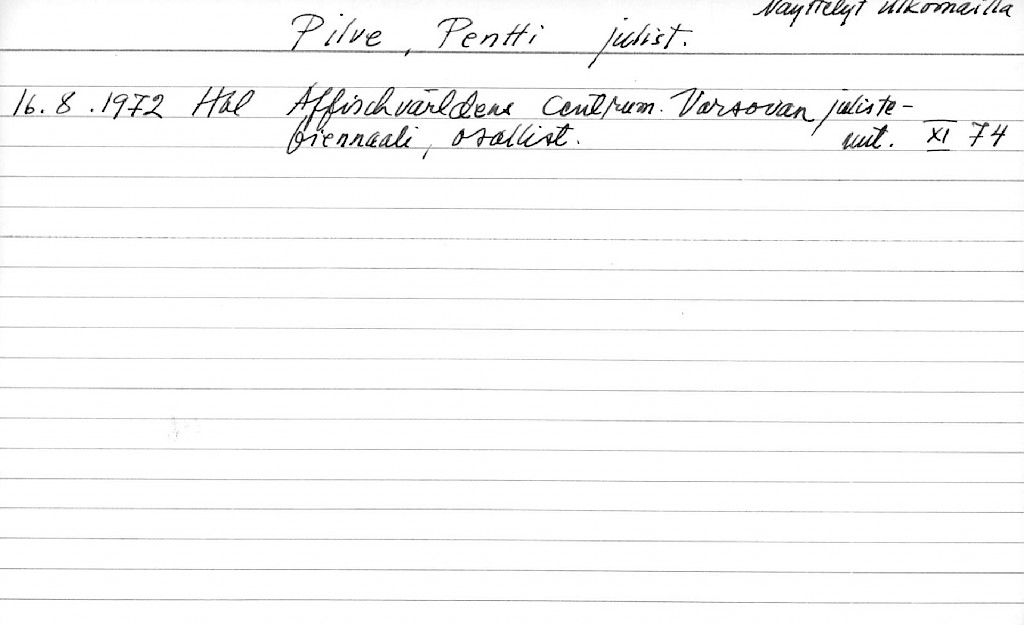 Näyttelyt ulkomailla
Pilve, Pentti julist.
16.8.1972 Hbl Affischvärldens centrum. Varsovan juliste-
biennaali, osallist. mt. XI 74